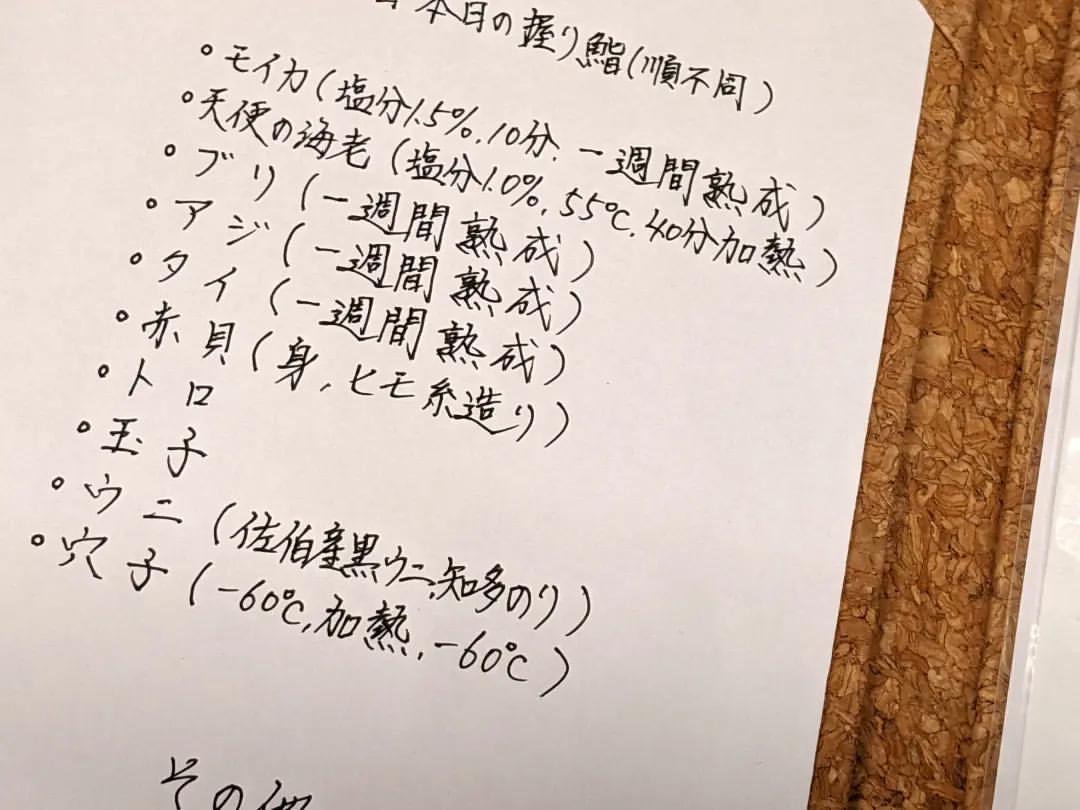 本日の握り鮨(順不同)
・モイカ(塩分1.5%、10分、一週間熟成)
・天使の海老(塩分1.0%、55℃、40分加熱)
・ブリ(一週間熟成)
・アジ(一週間熟成)
・タイ(一週間熟成)
・赤貝(身、ヒモ糸造り)
・トロ
・玉子
・ウニ(佐伯産黒ウニ、知多のり)
・穴子(-60℃、加熱、-60℃)
その他